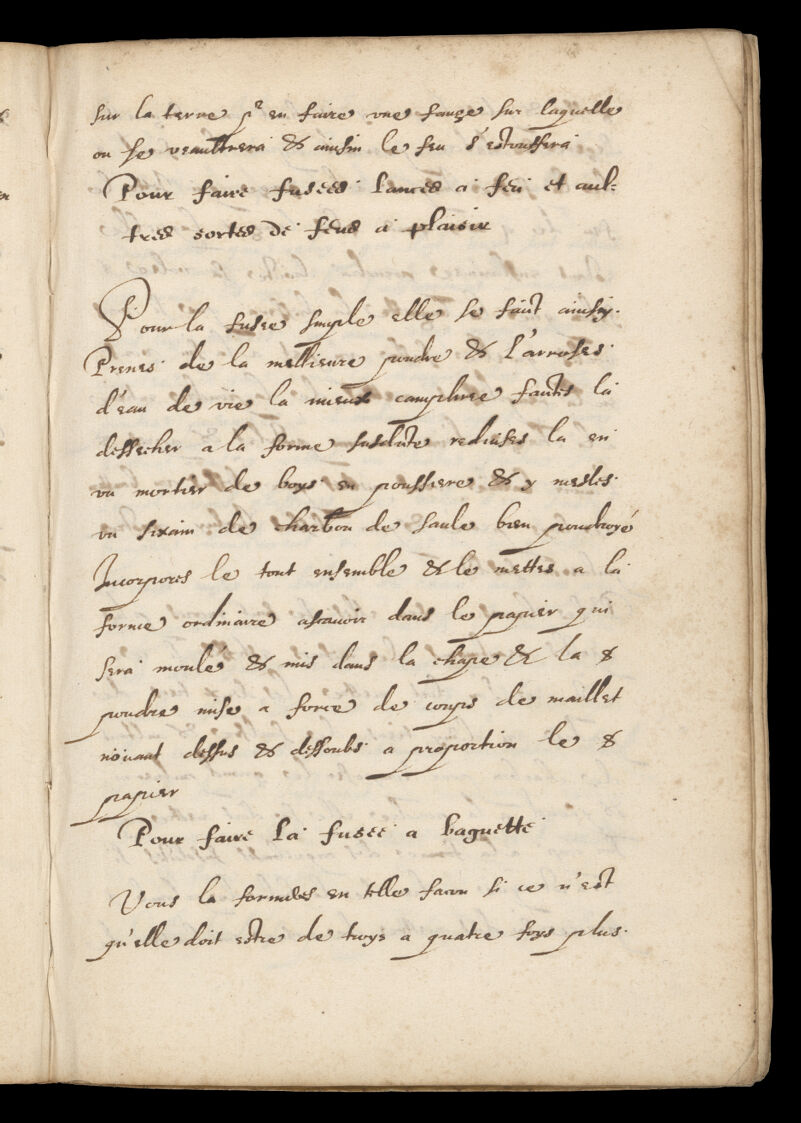 sur la terre pr en faire une fange sur laquelle
on se veaultrera & ainsin le feu s'estouffera
Pour faire fusees lances a feu et aul-
tres sortes de feus a plaisir
Pour la fusee simple elle se faict ainsin.
Prenes de la mellieure poudre & l'arroses
d'eau de vie la mieux camphree faictes la
dessecher a la forme susdicte reduises la en
un mortier de boys en poussiere & y mesles
un sixain de charbon de saule bien poudroyé
Incorpores le tout ensemble & le mettes a la
forme ordinaire ascavoir dans le papier qui
sera moulé & mis dans la chape & la &
poudre mise a force de coups de maillet
nouant dessus & dessoubs a proportion le &
papier
Pour faire la fusee a baguette
Vous la formeres en telle facon si ce n'est
qu'elle doit estre de troys a quatre foys plus